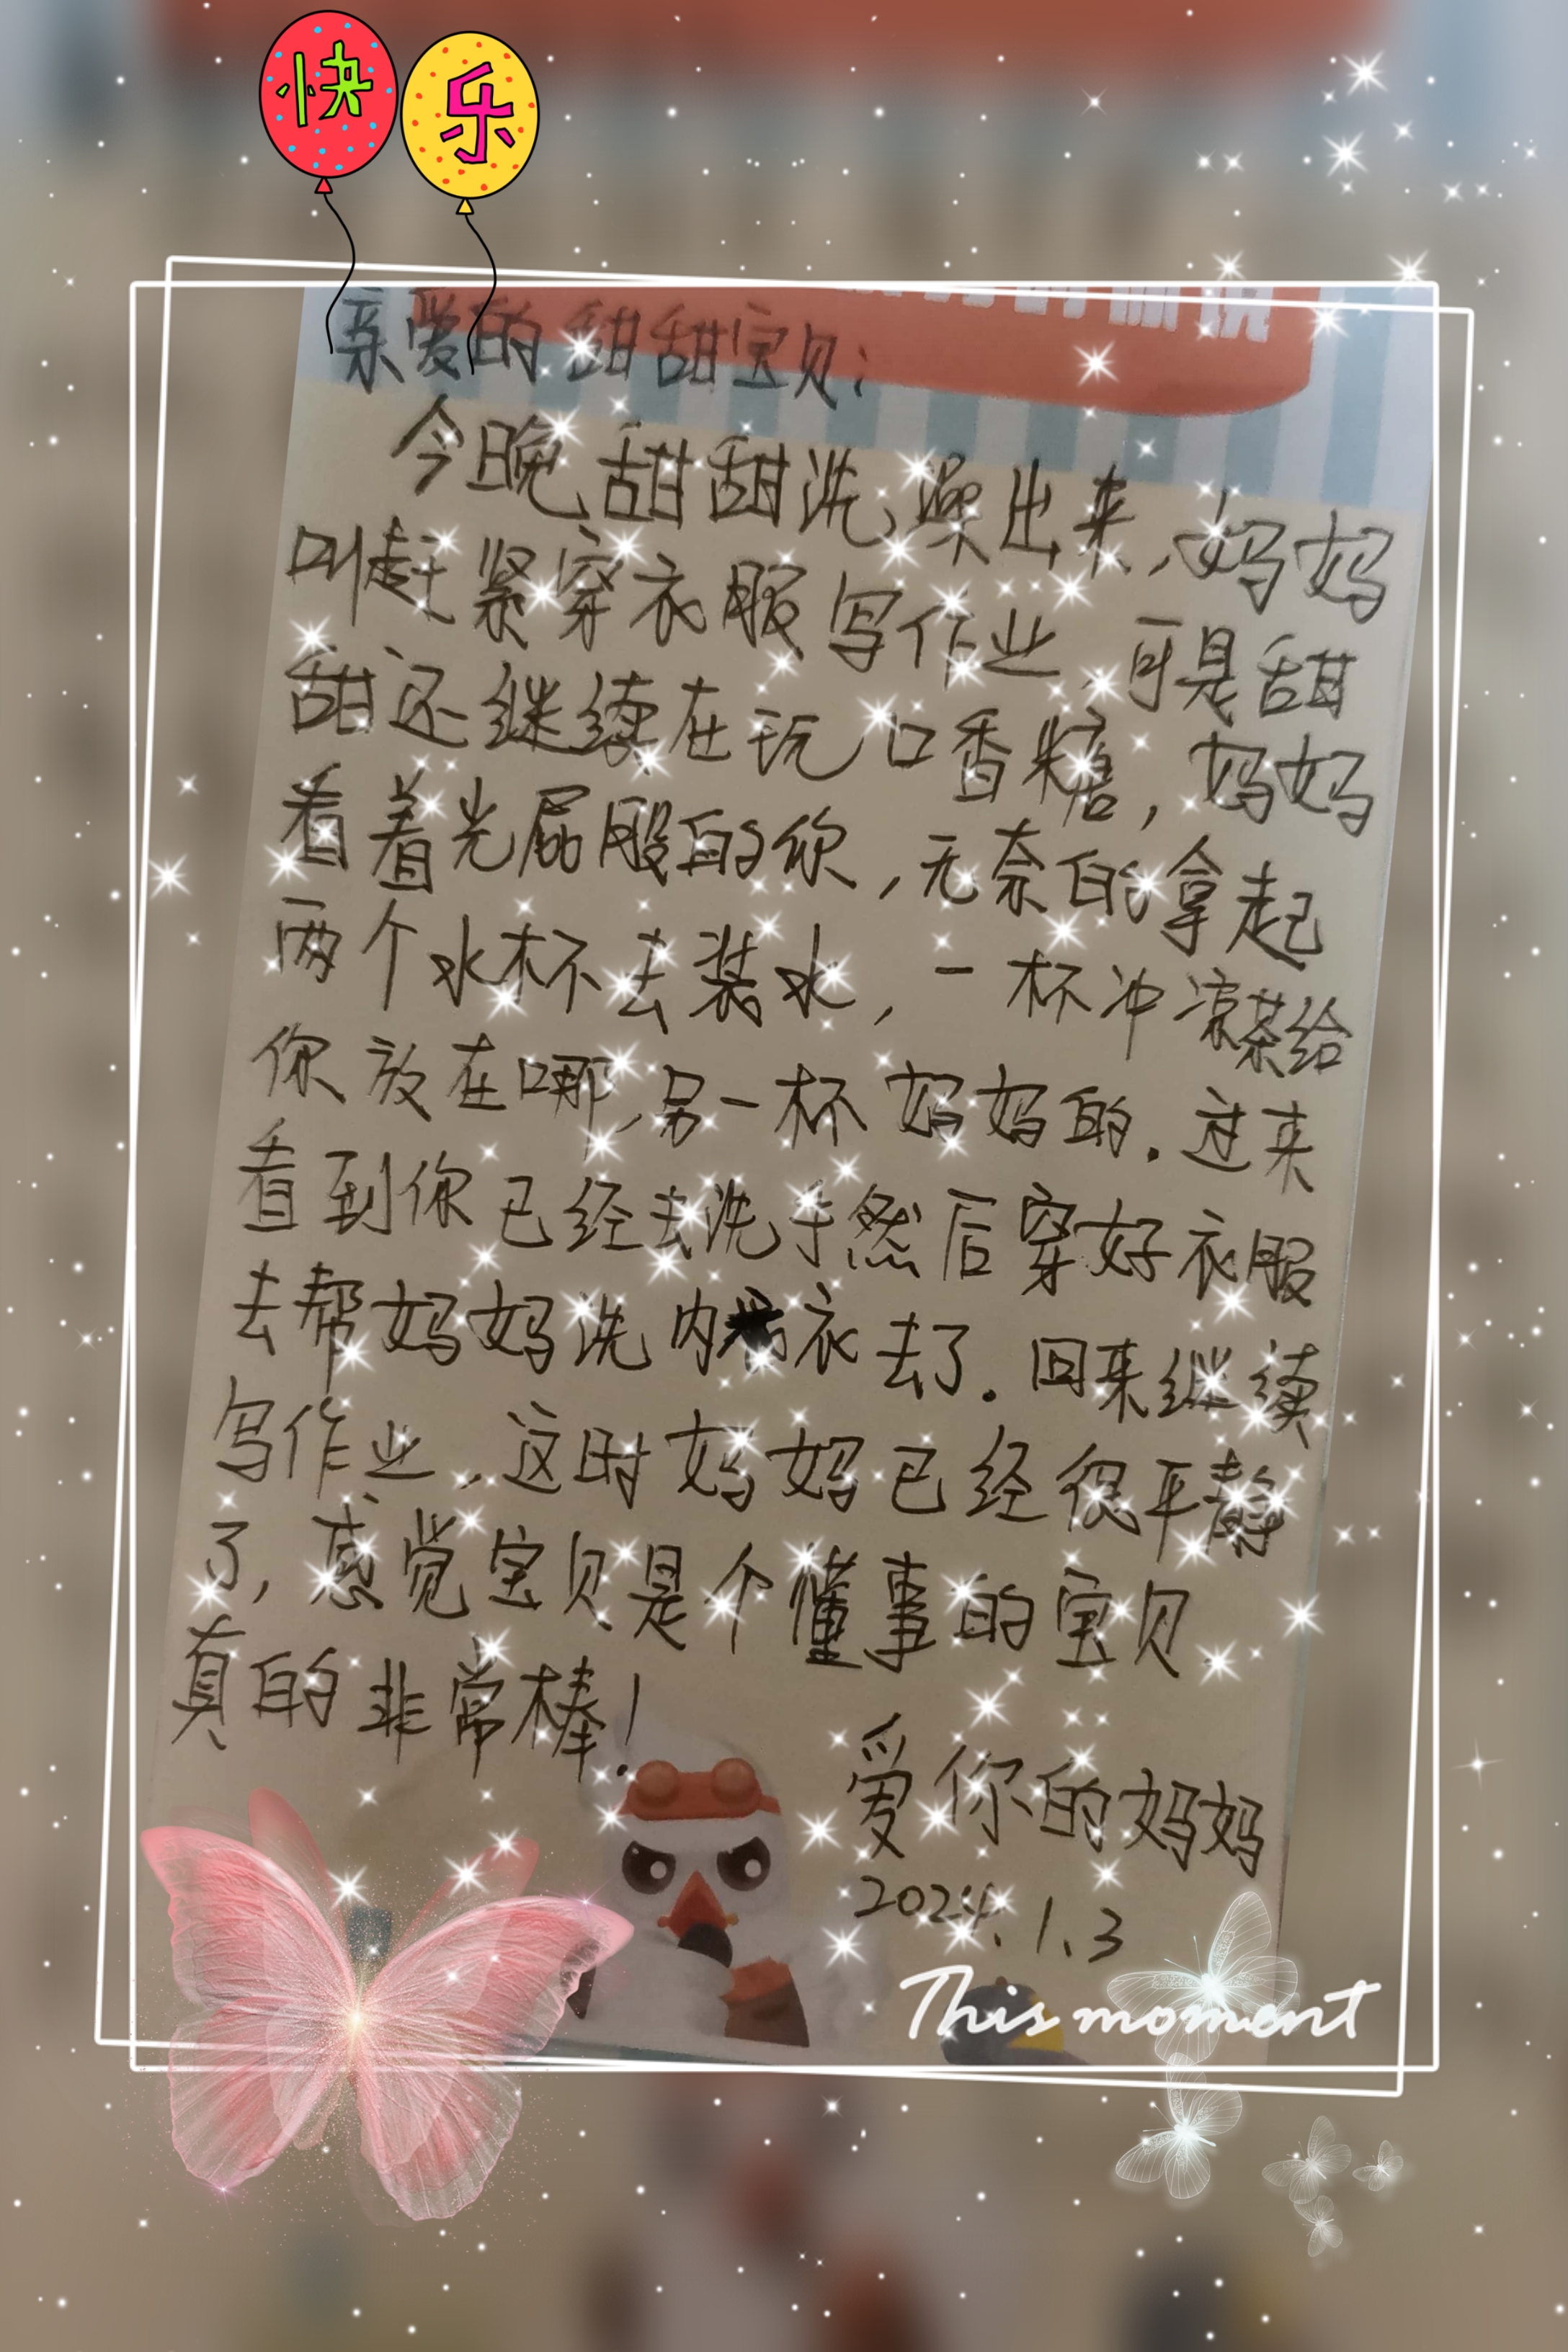 快乐
亲爱的甜甜宝贝:
今晚甜甜洗澡出来,妈妈
叫赶紧穿衣服写作业,可是甜
甜还继续在玩口香糖,妈妈
看着光屁股的你,无奈的拿起
两个水杯去装水,一杯冲凉茶给
你放在哪,另一杯妈妈的.过来
看到你已经去洗手然后穿好衣服
去帮妈妈洗内衣去了.回来继续
写作业,这时妈妈已经很平静
了,感觉宝贝是个懂事的宝贝
真的非常棒!
爱你的妈妈
2024.1.3
This moment